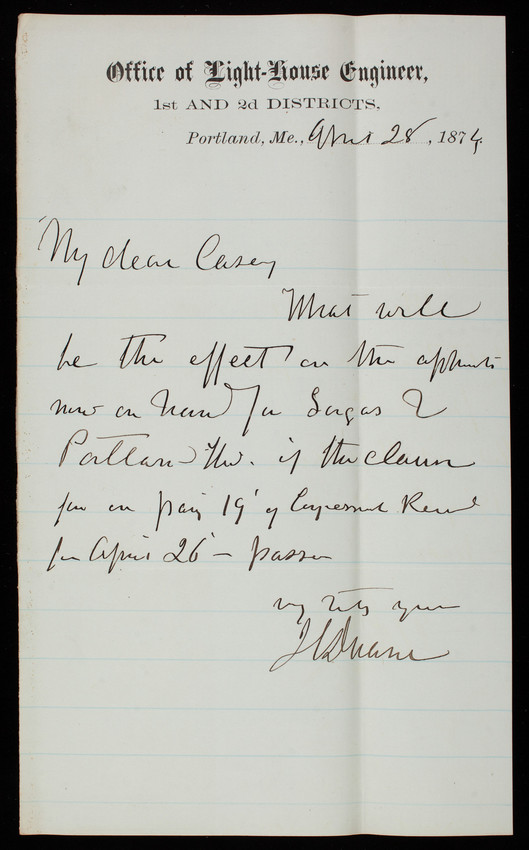 Office of Light-House Engineer,
1st AND 2d DISTRICTS,
Portland, Me., April 28, 1874.
My dear Casey
What will
be the effect on the
now on hand for Gorges &
Portland if the clause
for on page 19 of Congressnl Record
for April 26 - passes
Very truly yours
J C Duane